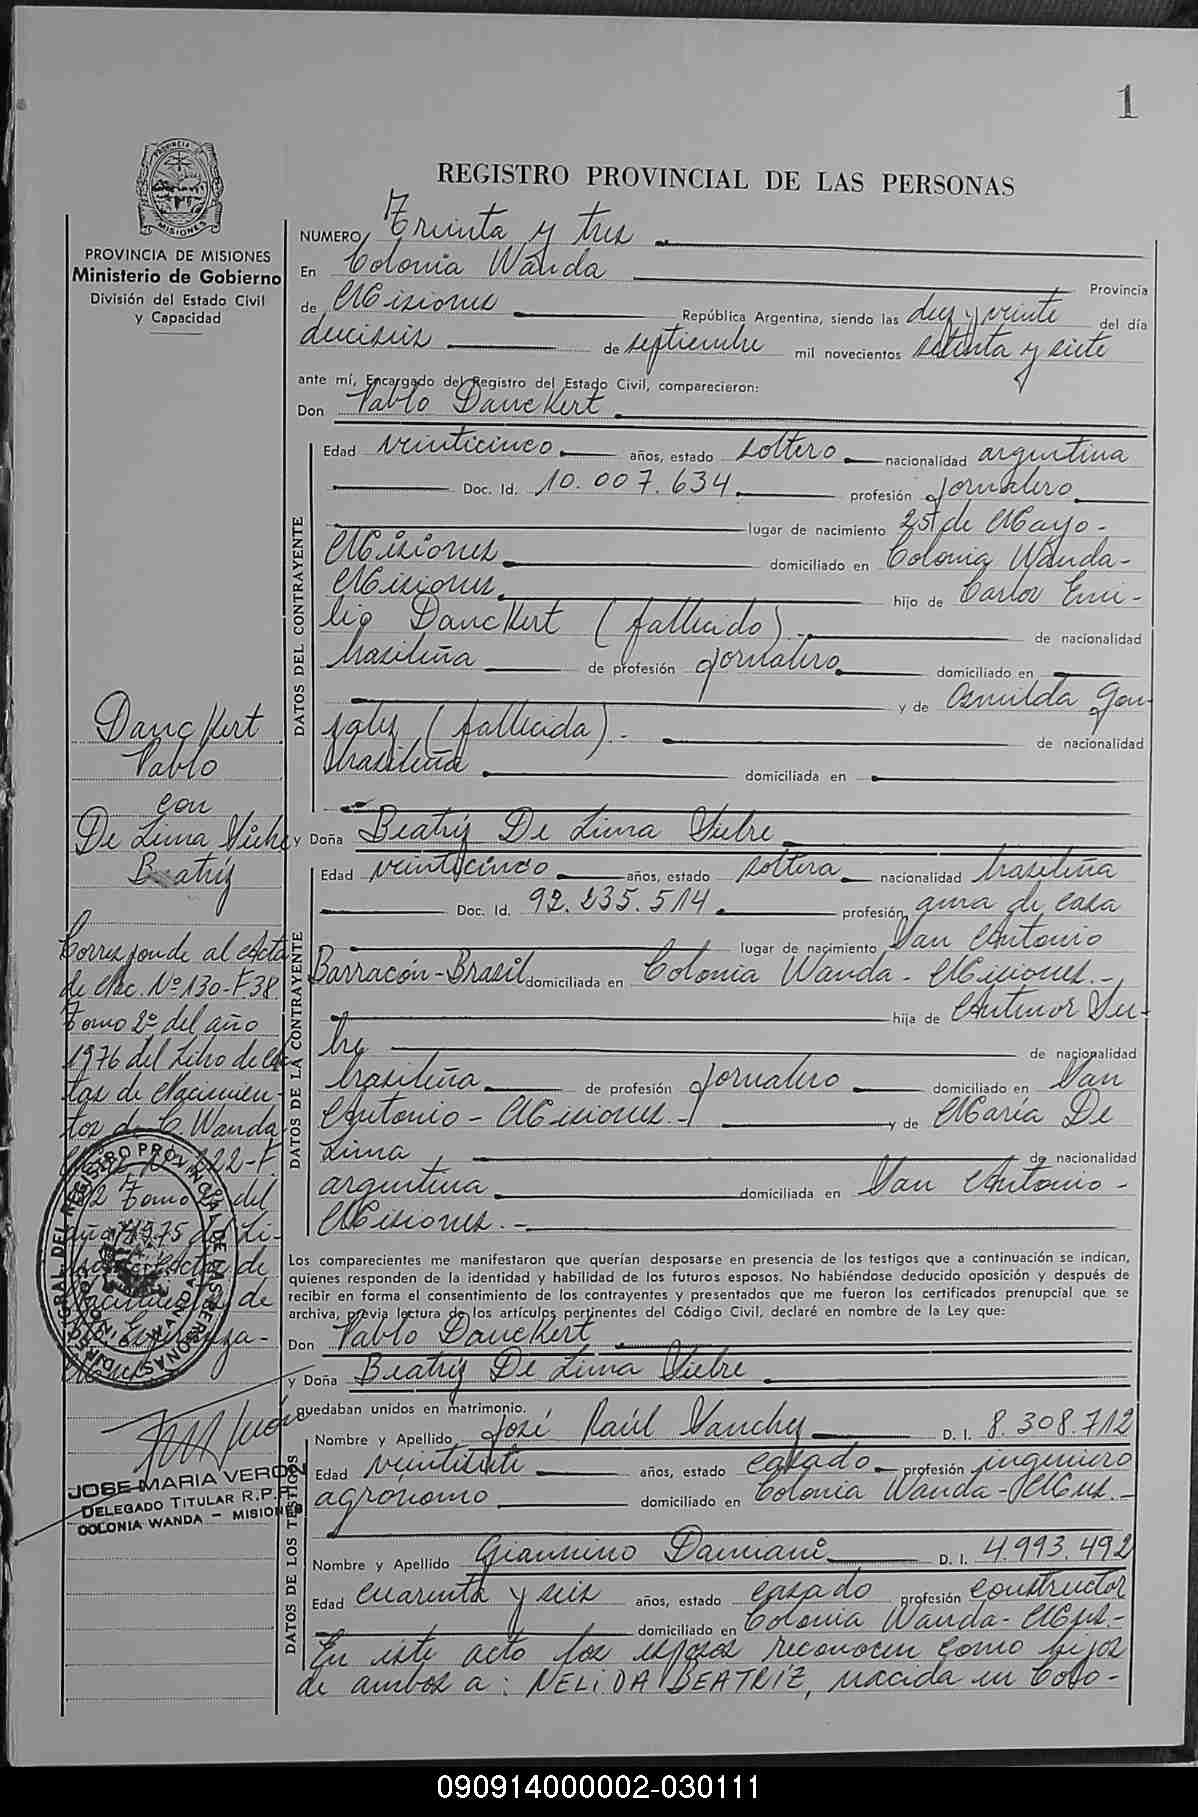 1
PROVINCIA DE MISIONES
REGISTRO PROVINCIAL DE LAS PERSONAS
PROVINCIA DE MISIONES
Ministerio de Gobierno
División del Estado Civil
y Capacidad
NUMERO Treinta y tres
En Colonia Wanda Provincia
de Misiones República Argentina, siendo las diez y veinte del día
dieciseis de septiembre mil novecientos setenta y siete
ante mí, Encargado del Registro del Estado Civil, comparecieron:
Don Pablo Danckert
DATOS DEL CONTRAYENTE
Edad veinticinco años, estado soltero nacionalidad argentina
Doc. Id. 10.007.634 profesión jornalero
lugar de nacimiento 25 de Mayo-
Misiones domiciliado en Colonia Wanda-
Misiones hijo de Carlos Emi-
lio Danckert (fallecido).- de nacionalidad
brasileña de profesión jornalero domiciliado en
y de Asnilda Gon-
salez (fallecida).- de nacionalidad
brasileña domiciliada en
Danckert
Pablo
con
De Lima Siebre
Beatríz
y Doña Beatríz De Lima Siebre
DATOS DE LA CONTRAYENTE
Edad veinticinco años, estado soltera nacionalidad brasileña
Doc. Id. 92.235.514 profesión ama de casa
lugar de nacimiento San Antonio
Barracón-Brasil domiciliada en Colonia Wanda- Misiones.-
hija de Antenor Sie-
bre de nacionalidad
brasileña de profesión jornalero domiciliado en San
Antonio- Misiones.- y de María De
Lima de nacionalidad
argentina domiciliada en San Antonio-
Misiones.-
Corresponde al Acta
de Nac. Nº 130-F.38
Tomo 2º del año
1976 del Libro de Ac
tas de Nacimien-
tos de C. Wanda
222-F.
Tomo del
año 1975 del Li-
bro de Actas de
Nacimientos de
Esperanza-
DIRECC. GRAL DEL REGISTRO PROVINCIAL DE LAS PERSONAS
WANDA
MISIONES
JOSE MARIA VERON
DELEGADO TITULAR R.P.P.
COLONIA WANDA - MISIONES
Los comparecientes me manifestaron que querían desposarse en presencia de los testigos que a continuación se indican,
quienes responden de la identidad y habilidad de los futuros esposos. No habiéndose deducido oposición y después de
recibir en forma el consentimiento de los contrayentes y presentados que me fueron los certificados prenupcial que se
archiva, previa lectura de los artículos pertinentes del Código Civil, declaré en nombre de la Ley que:
Don Pablo Danckert
y Doña Beatríz De Lima Siebre
quedaban unidos en matrimonio.
DATOS DE LOS TESTIGOS
Nombre y Apellido José Raúl Sanchez D. I. 8.308.712
Edad veintisiete años, estado casado profesión ingeniero
agrónomo domiciliado en Colonia Wanda-Mnes.-
Nombre y Apellido Giannino Damiani D. I. 4.993.492
Edad cuarenta y seis años, estado casado profesión constructor
domiciliado en Colonia Wanda- Mnes.-
En este acto los esposos reconocen como hijos
de ambos a: NELIDA BEATRIZ, nacida en Colo-
090914000002-030111